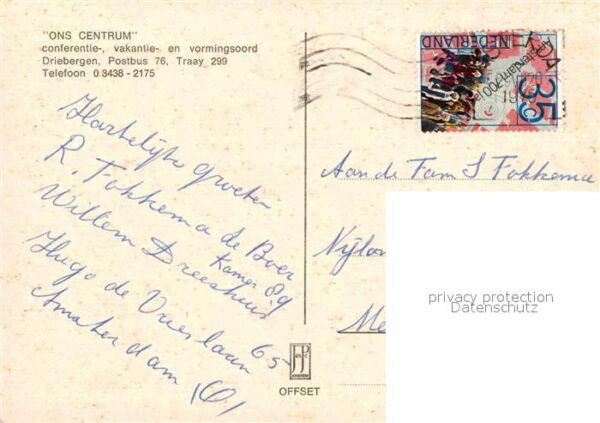 "ONS CENTRUM"
conferentie-, vakantie- en vormingsoord
Driebergen, Postbus 76, Traay 299
Telefoon 0 3438 - 2175
NEDERLAND
Amsterdam 700 jaar
35c
Hartelijke groeten
R. Fokkema de Boer
Kamer 89
Willem Dreeshuis
Hugo de Vrieslaan 65
Amsterdam (O)
Aan de Fam S Fokkema
Nijlan
Me
privacy protection
Datenschutz
JosPé
OFFSET